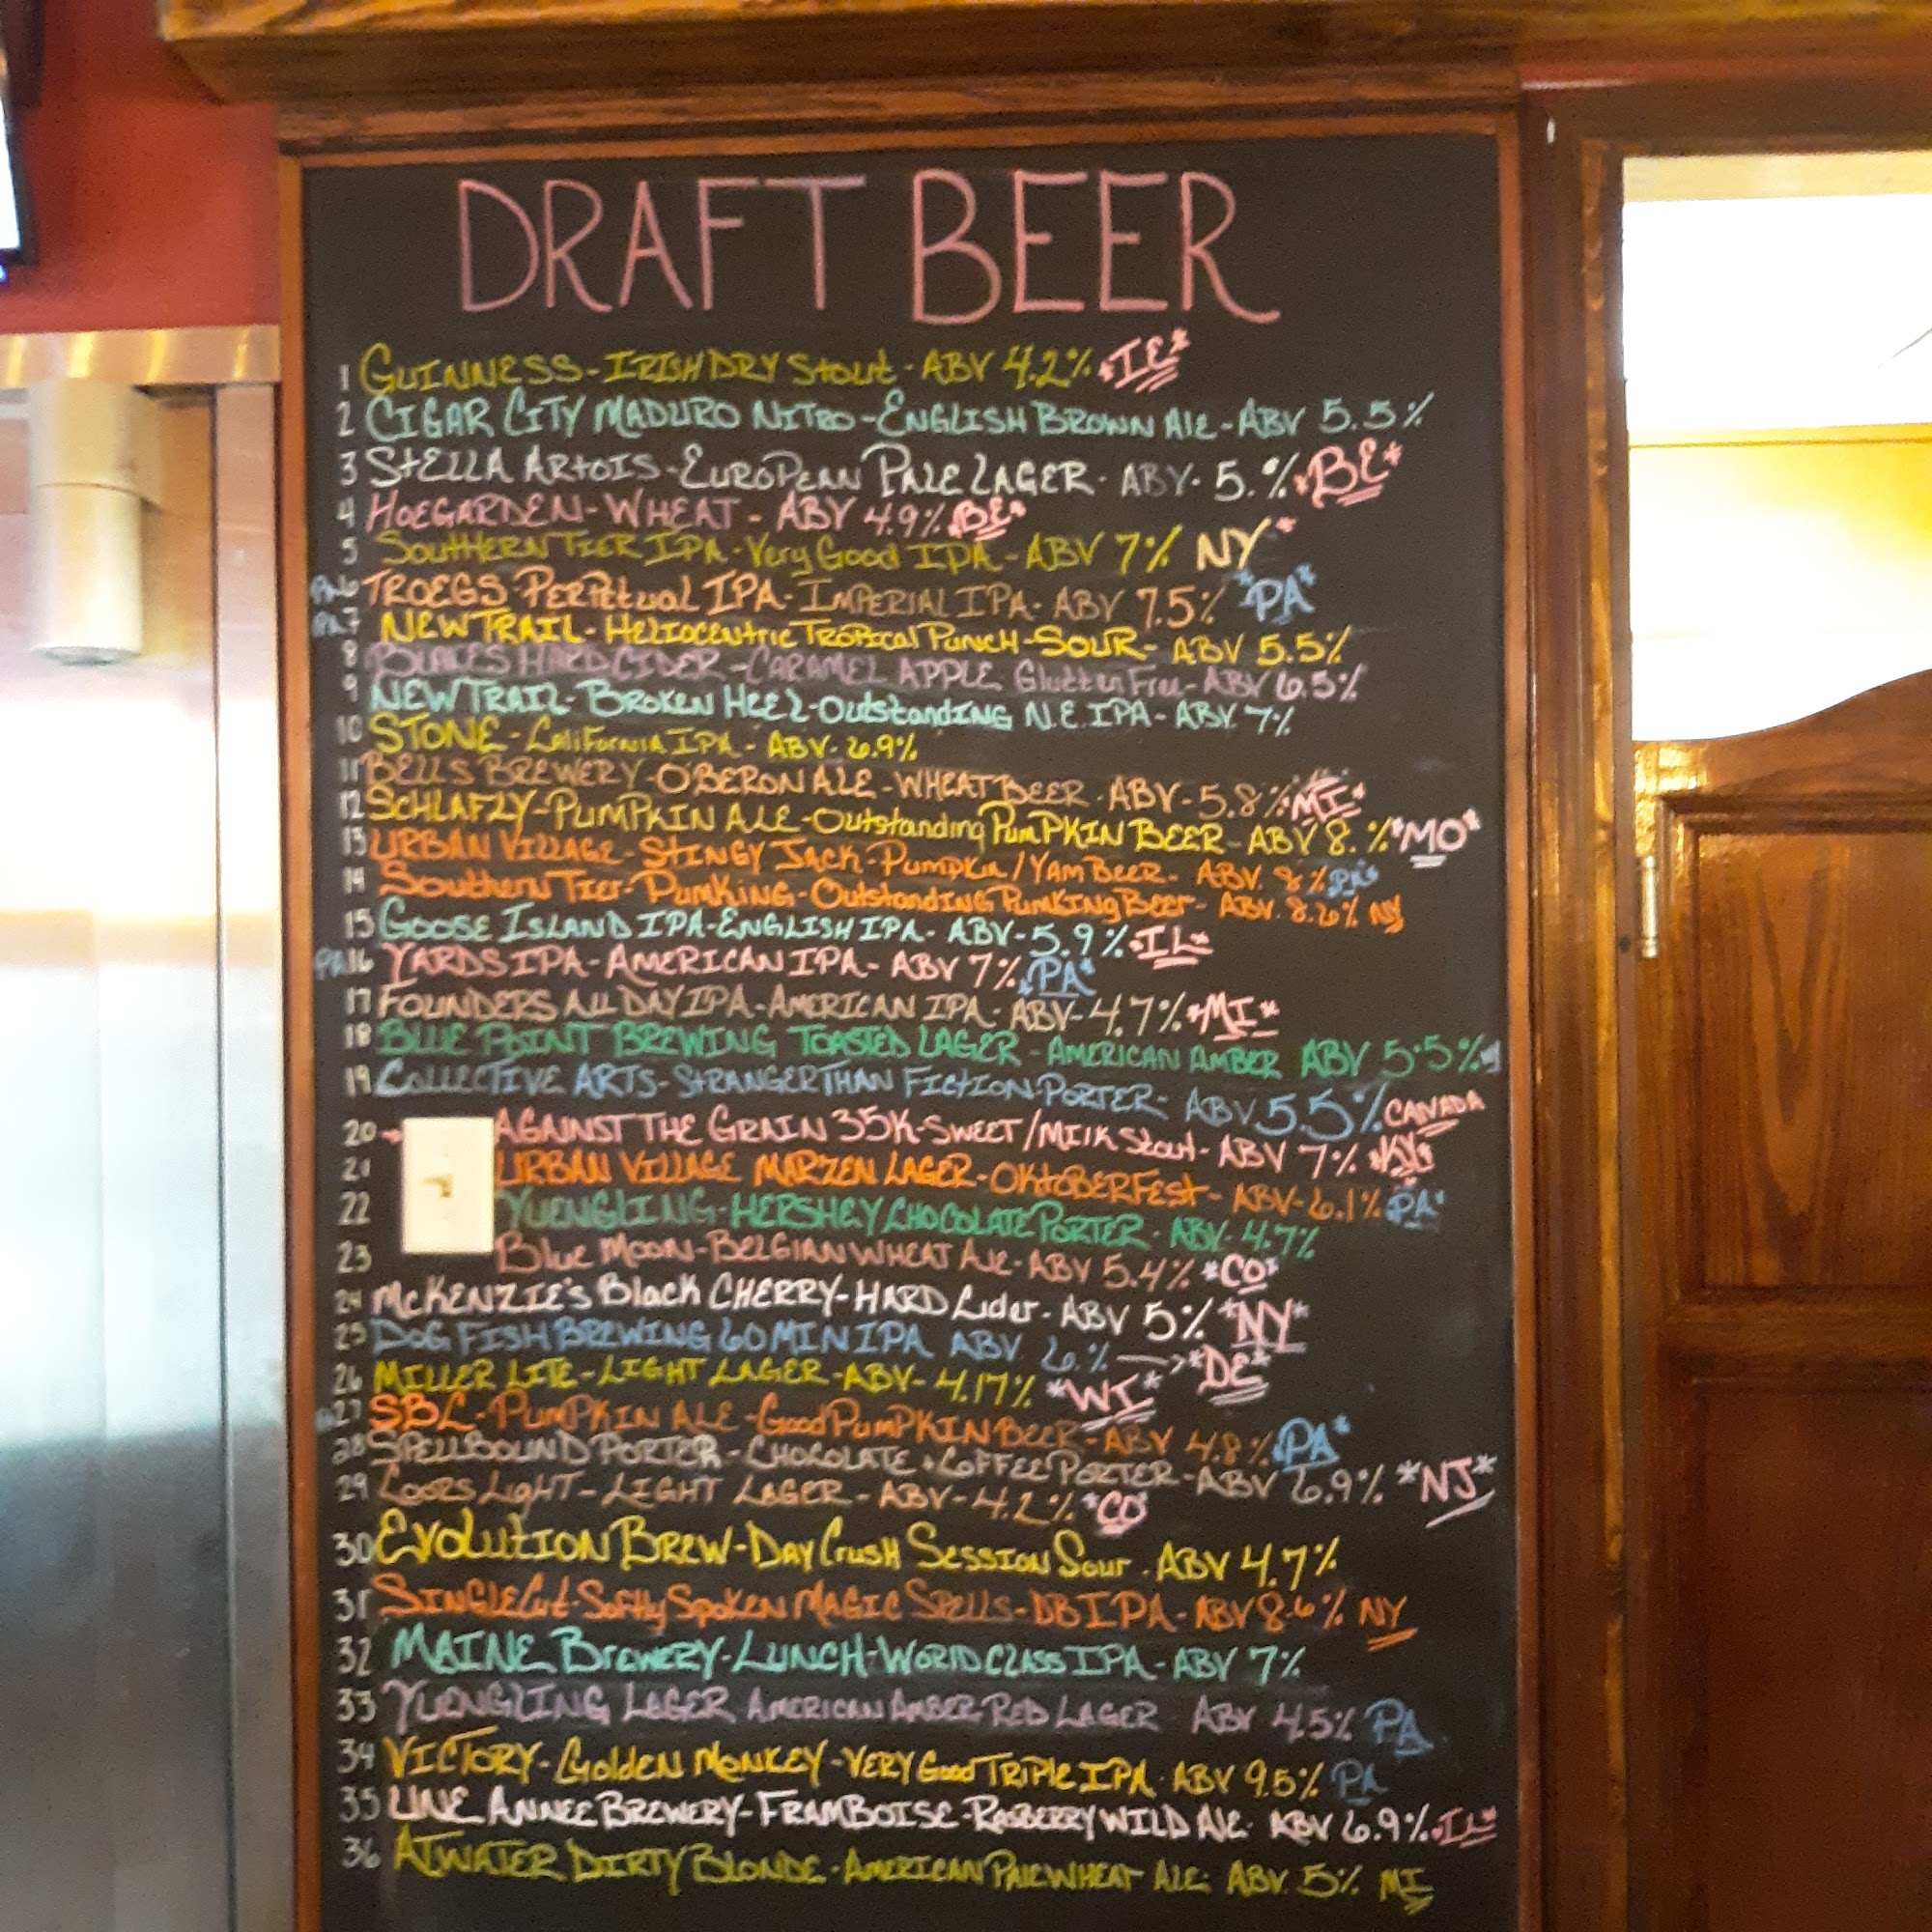 DRAFT BEER
1 GUINNESS - IRISH DRY Stout - ABV 4.2% *IE*
2 CIGAR CITY MADURO NITRO - ENGLISH BROWN ALE - ABV 5.5%
3 STELLA ARTOIS - EUROPEAN PALE LAGER - ABV - 5.% *BE*
4 HOEGARDEN - WHEAT - ABV 4.9% *BE*
5 SOUTHERN TIER IPA - Very Good IPA - ABV 7% NY*
PA 6 TROEGS - PERPETUAL IPA - IMPERIAL IPA - ABV 7.5% *PA*
PA 7 NEW TRAIL - HELIOCENTRIC TROPICAL PUNCH - SOUR - ABV 5.5%
8 BLAKES HARD CIDER - CARAMEL APPLE Glutten Free - ABV 6.5%
9 NEW TRAIL - BROKEN HEEL - Outstanding N.E. IPA - ABV 7%
10 STONE - California IPA - ABV - 6.9%
11 BELLS BREWERY - O'BERON ALE - WHEAT BEER - ABV - 5.8% *MI*
12 SCHLAFLY - PUMPKIN ALE - Outstanding PUMPKIN BEER - ABV 8.% *MO*
13 URBAN VILLAGE - STINGY JACK - Pumpkin / YAM BEER - ABV. 8% *PA*
14 Southern Tier - PUMKING - OUTSTANDING PUMKING Beer - ABV. 8.6% NY
15 GOOSE ISLAND IPA - ENGLISH IPA - ABV - 5.9% *IL*
PA 16 YARDS IPA - AMERICAN IPA - ABV 7% *PA*
17 FOUNDERS ALL DAY IPA - AMERICAN IPA - ABV - 4.7% *MI*
18 BLUE POINT BREWING TOASTED LAGER - AMERICAN AMBER ABV 5.5%
19 COLLECTIVE ARTS - STRANGER THAN FICTION - PORTER - ABV 5.5% CANADA
20 AGAINST THE GRAIN 35K - SWEET / MILK Stout - ABV 7% *KY*
21 URBAN VILLAGE MARZEN LAGER - OKTOBERFEST - ABV - 6.1% *PA*
22 YUENGLING - HERSHEY CHOCOLATE PORTER - ABV - 4.7%
23 Blue Moon - BELGIAN WHEAT ALE - ABV 5.4% *CO*
24 McKENZIE'S Black CHERRY - HARD Cider - ABV 5% *NY*
25 DOG FISH BREWING 60 MIN IPA ABV 6.% → *DE*
26 MILLER LITE - LIGHT LAGER - ABV - 4.17% *WI*
27 SBC - PUMPKIN ALE - Good PUMPKIN BEER - ABV 4.8% *PA*
28 SPELLBOUND PORTER - CHOCOLATE + COFFEE PORTER - ABV 6.9% *NJ*
29 COORS LIGHT - LIGHT LAGER - ABV - 4.2% *CO*
30 EVOLUTION BREW - DAY Crush SESSION Sour - ABV 4.7%
31 SINGLECUT - Softly Spoken MAGIC SPELLS - DB IPA - ABV 8.6% NY
32 MAINE BREWERY - LUNCH - WORLD CLASS IPA - ABV 7%
33 YUENGLING LAGER AMERICAN AMBER RED LAGER ABV 4.5% PA
34 VICTORY - Golden MONKEY - VERY Good TRIPLE IPA - ABV 9.5% PA
35 UNE ANNEE BREWERY - FRAMBOISE - RASBERRY WILD ALE - ABV 6.9% *IL*
36 ATWATER DIRTY BLONDE - AMERICAN PALE WHEAT ALE - ABV. 5% MI